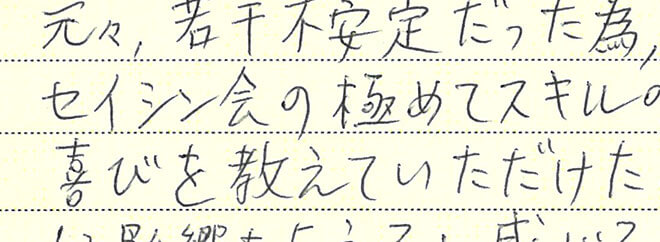 元々,若干不安定だった為,
セイシン会の極めてスキルの
喜びを教えていただけた